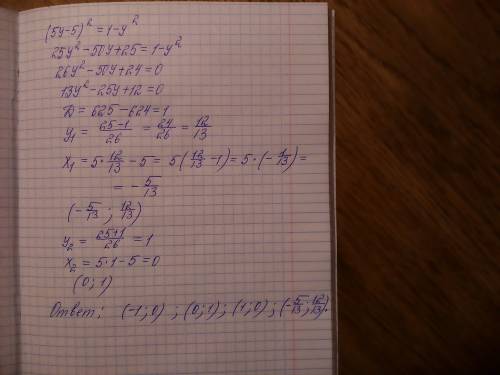 (5y-5)² = 1-y²
25y² - 50y + 25 = 1-y²
26y² - 50y + 24 = 0
13y² - 25y + 12 = 0
D = 625 - 624 = 1
y₁ = 25-1/26 = 24/26 = 12/13
x₁ = 5·12/13 - 5 = 5(12/13 - 1) = 5·(-1/13) =
= -5/13
(-5/13 ; 12/13)
y₂ = 25+1/26 = 1
x₂ = 5·1 - 5 = 0
(0; 1)
Ответ: (-1; 0) ; (0; 1) ; (1; 0) ; (-5/13; 12/13).